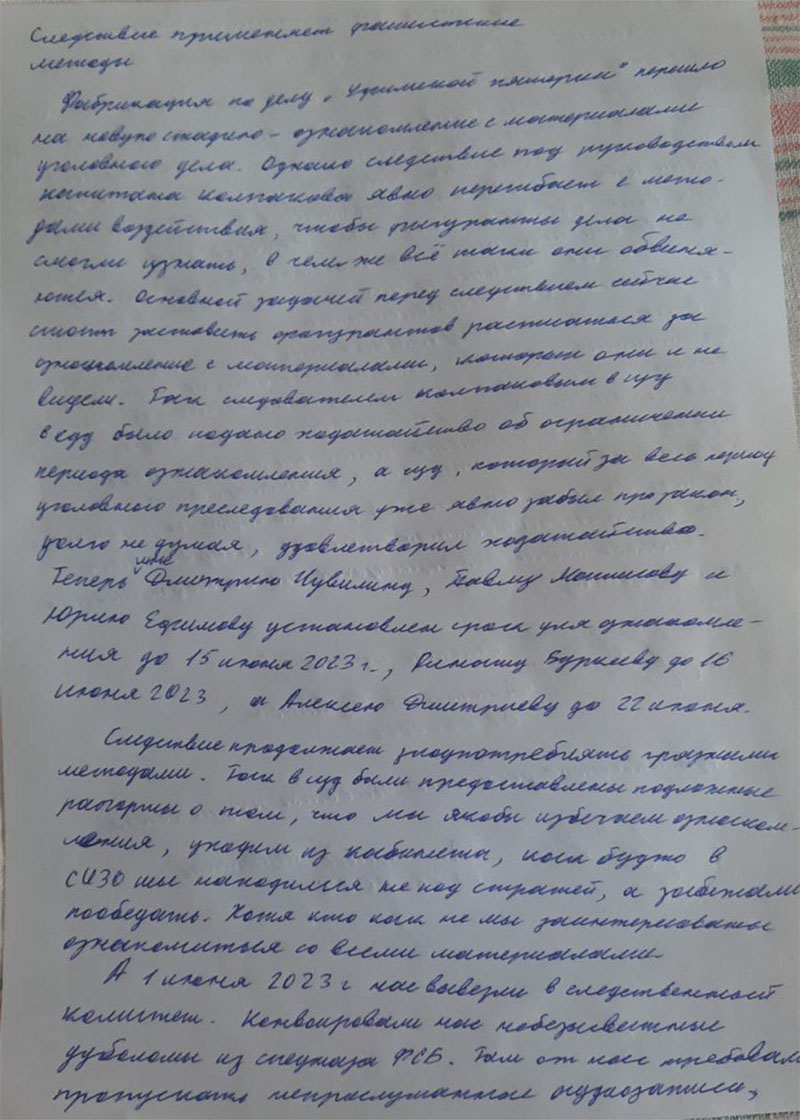 Следствие применяет фашистские
методы
Фабрикация по делу „Уфимской пятерки" перешло
на новую стадию - ознакомление с материалами
уголовного дела. Однако следствие под руководством
капитана Колпакова явно перегибает с мето-
дами воздействия, чтобы фигуранты дела не
смогли узнать, в чем же всё таки они обвиня-
ются. Основной задачей перед следствием сейчас
стоит заставить фигурантов расписаться за
ознакомление с материалами, которые они и не
видели. Так следователем Колпаковым в суд
в суд было подано ходатайство об ограничении
периода ознакомления, а суд, который за весь период
уголовного преследования уже явно забыл про закон,
долго не думая, удовлетворил ходатайство.
Теперь мне Дмитрию Чувилину, Павлу Матисову и
Юрию Ефимову установлен срок для ознакомле-
ния до 15 июня 2023 г., Ринату Буркееву до 16
июня 2023, а Алексею Дмитриеву до 22 июня.
Следствие продолжает злоупотреблять грязными
методами. Так в суд были предоставлены подложные
рапорты о том, что мы якобы избегаем ознаком-
ления, уходим из кабинета, как будто в
СИЗО мы находимся не под стражей, а забежали
пообедать. Хотя кто как не мы заинтересованы
ознакомиться со всеми материалами.
А 1 июня 2023 г нас вывезли в следственный
комитет. Конвоировали нас небезызвестные
удболомы из спецназа ФСБ. Там от нас требовали
пропускать непрослушанные аудиозаписи,